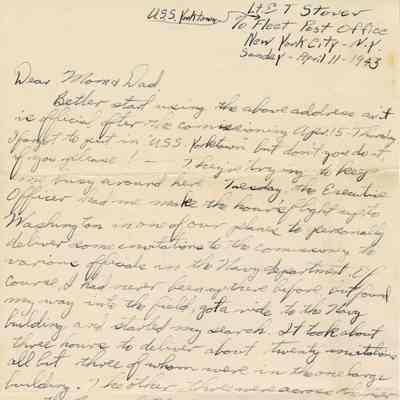 U.S.S. Yorktown
Lt E T Stover
To Fleet Post Office
New York City - N.Y.
Sunday - April 11 - 1943
Dear Mom & Dad
Better start using the above address as it
is official after the commissioning Apr. 15 - I
forgot to put in "U.S.S. Yorktown" but don't you do it
if you please! - They're trying to keep
me busy around here. Tuesday the Executive
Officer had me make the hour's flight up to
Washington in one of our planes to personally
deliver some invitations to the commissioning to
various officials in the Navy department. Of
course, I had never been up there before but found
my way into the field, got a ride to the Navy
building and started my search. It took about
three hours to deliver about twenty invitations
all but three of whom were in the one large
building. The other three were across the river